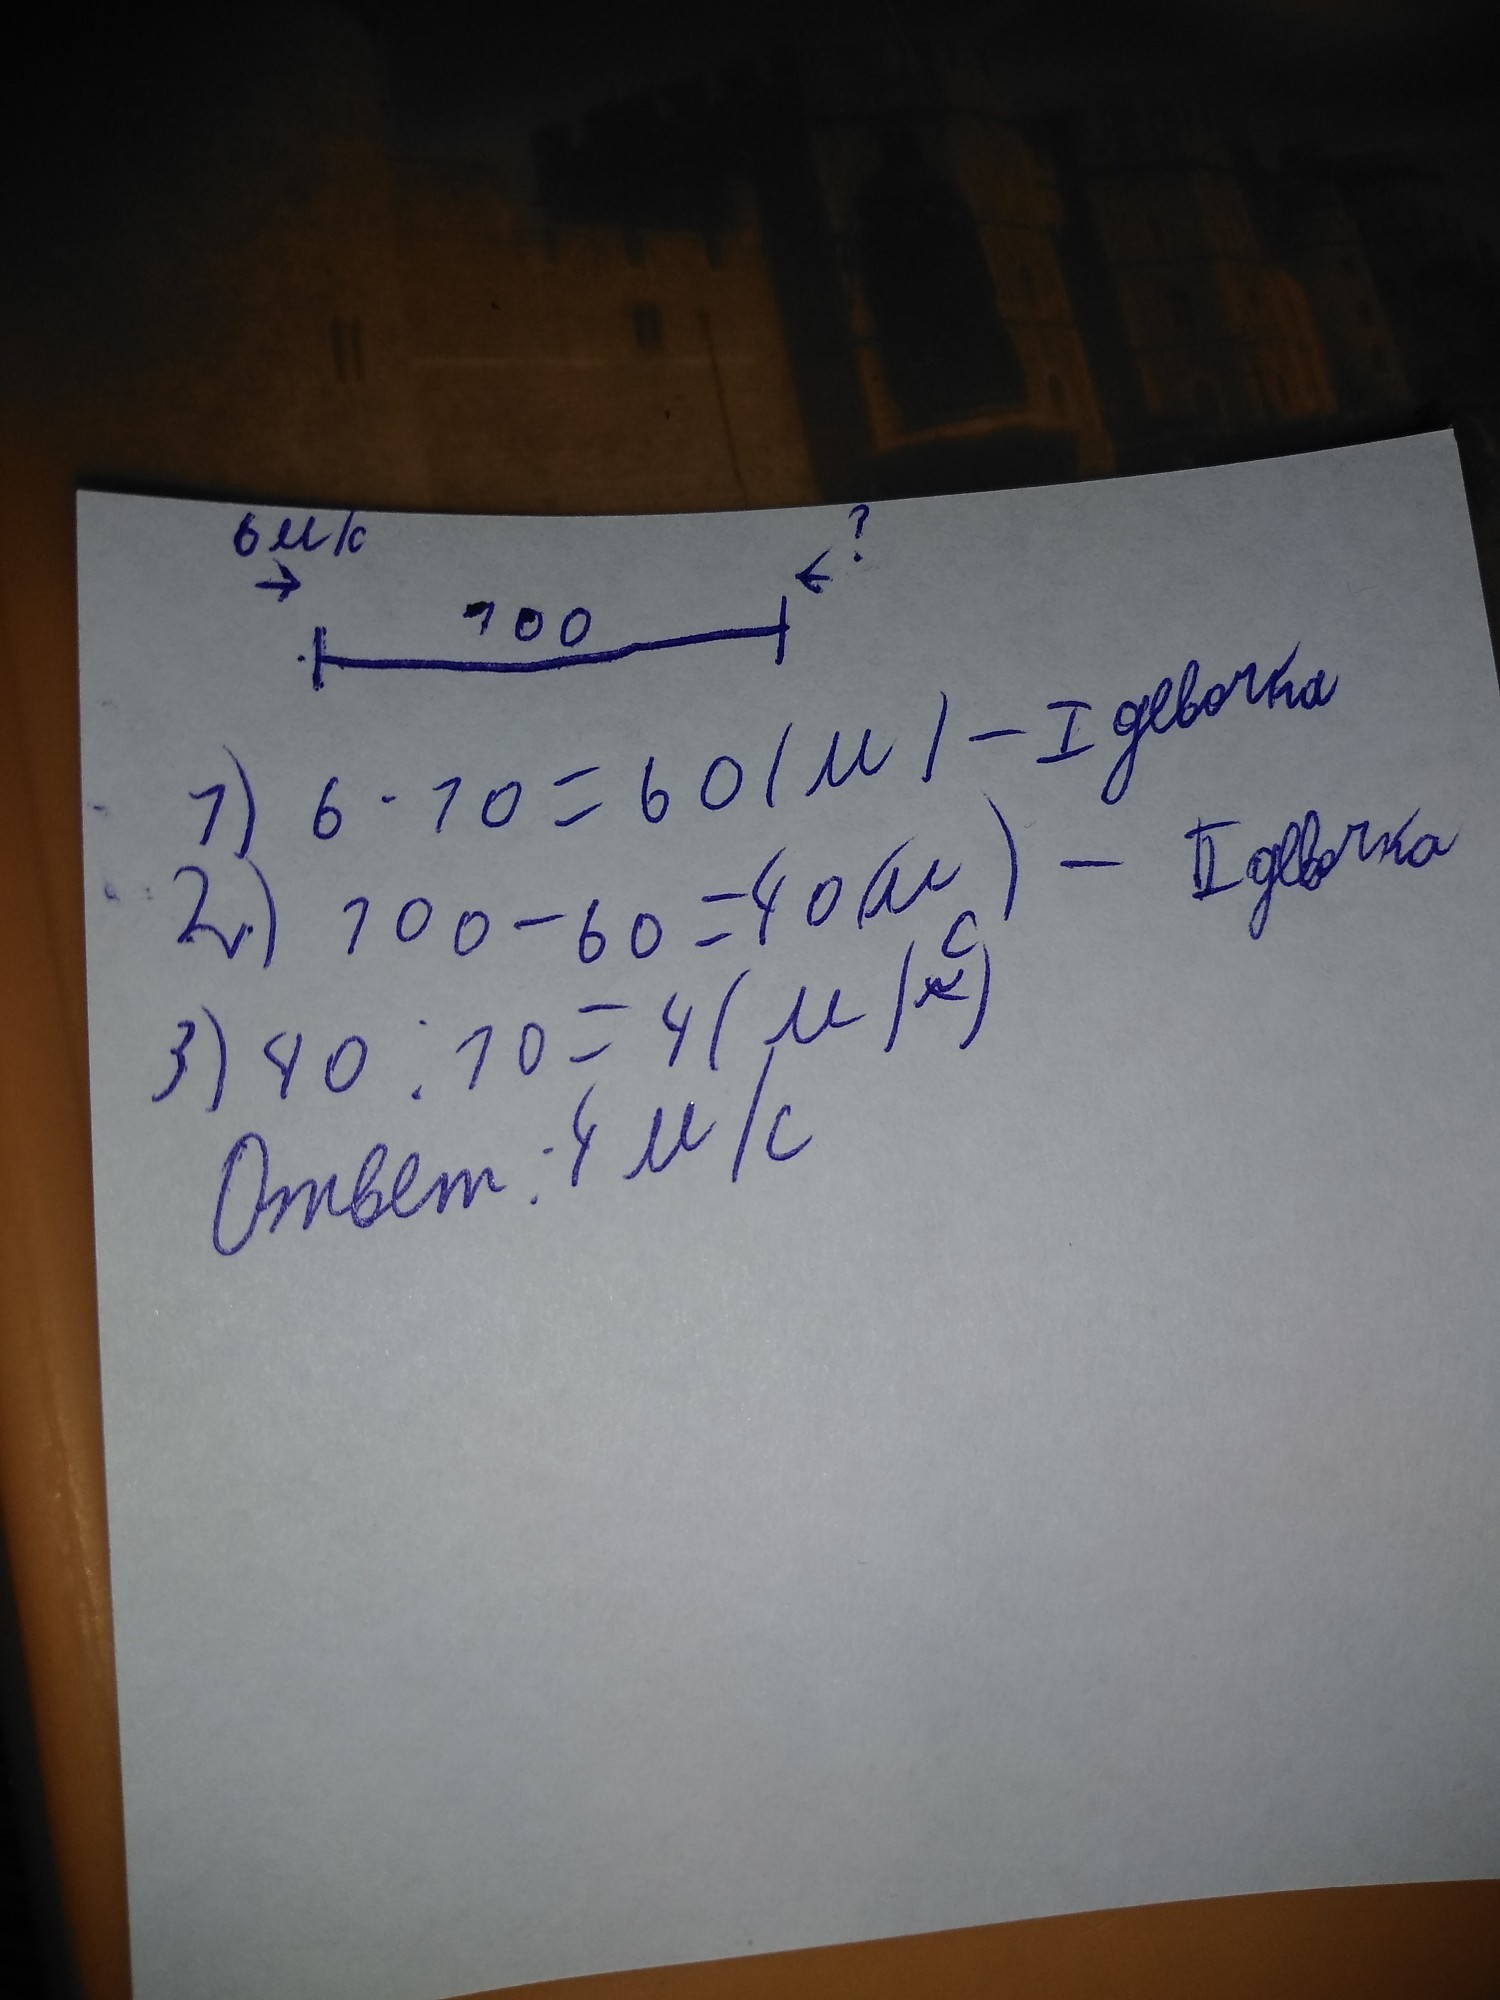 6 м/с
?
100
1) 6 · 10 = 60 (м) – I девочка
2) 100 – 60 = 40 (м) – II девочка
3) 40 : 10 = 4 (м/с)
Ответ: 4 м/с